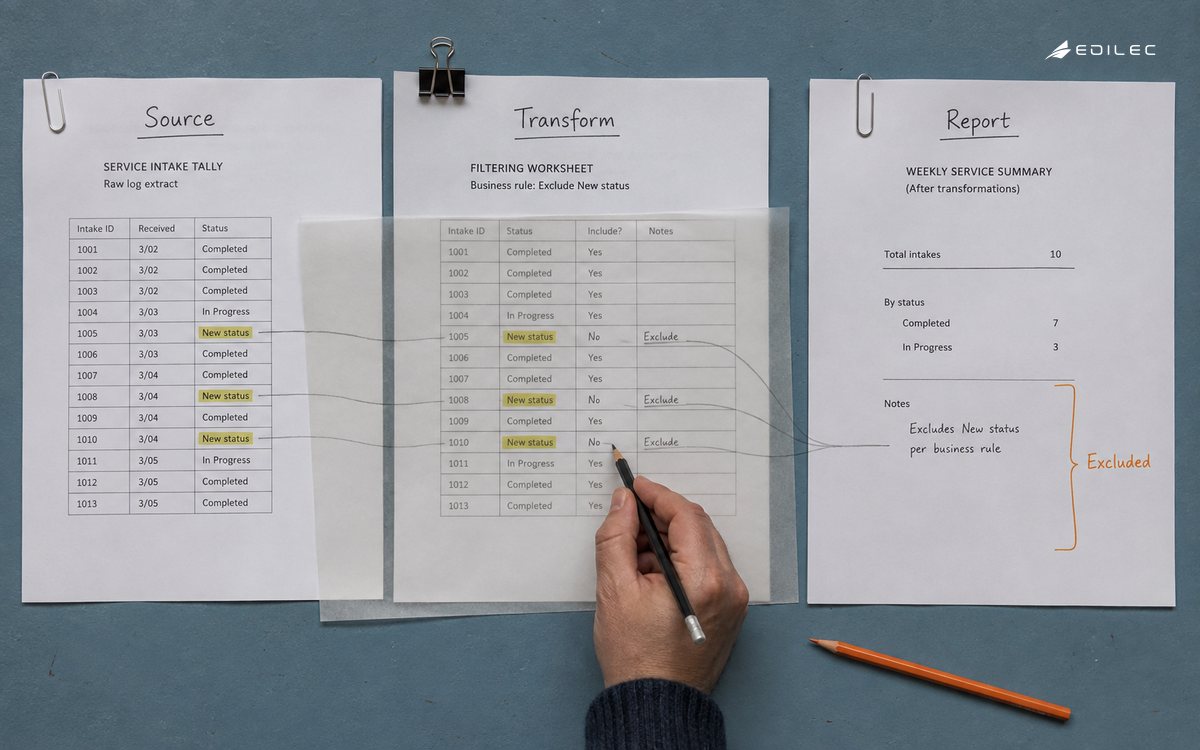 EDILEC
Source
SERVICE INTAKE TALLY
Raw log extract
Intake ID Received Status
1001 3/02 Completed
1002 3/02 Completed
1003 3/02 Completed
1004 3/03 In Progress
1005 3/03 New status
1006 3/03 Completed
1007 3/04 Completed
1008 3/04 New status
1009 3/04 Completed
1010 3/04 New status
1011 3/05 In Progress
1012 3/05 Completed
1013 3/05 Completed
Transform
FILTERING WORKSHEET
Business rule: Exclude New status
Intake ID Status Include? Notes
1001 Completed Yes
1002 Completed Yes
1003 Completed Yes
1004 In Progress Yes
1005 New status No Exclude
1006 Completed Yes
1007 Completed Yes
1008 New status No Exclude
1009 Completed Yes
1010 New status No Exclude
1011 In Progress Yes
1012 Completed Yes
1013 Completed Yes
Report
WEEKLY SERVICE SUMMARY
(After transformations)
Total intakes 10
By status
Completed 7
In Progress 3
Notes
Excludes New status
per business rule
Excluded